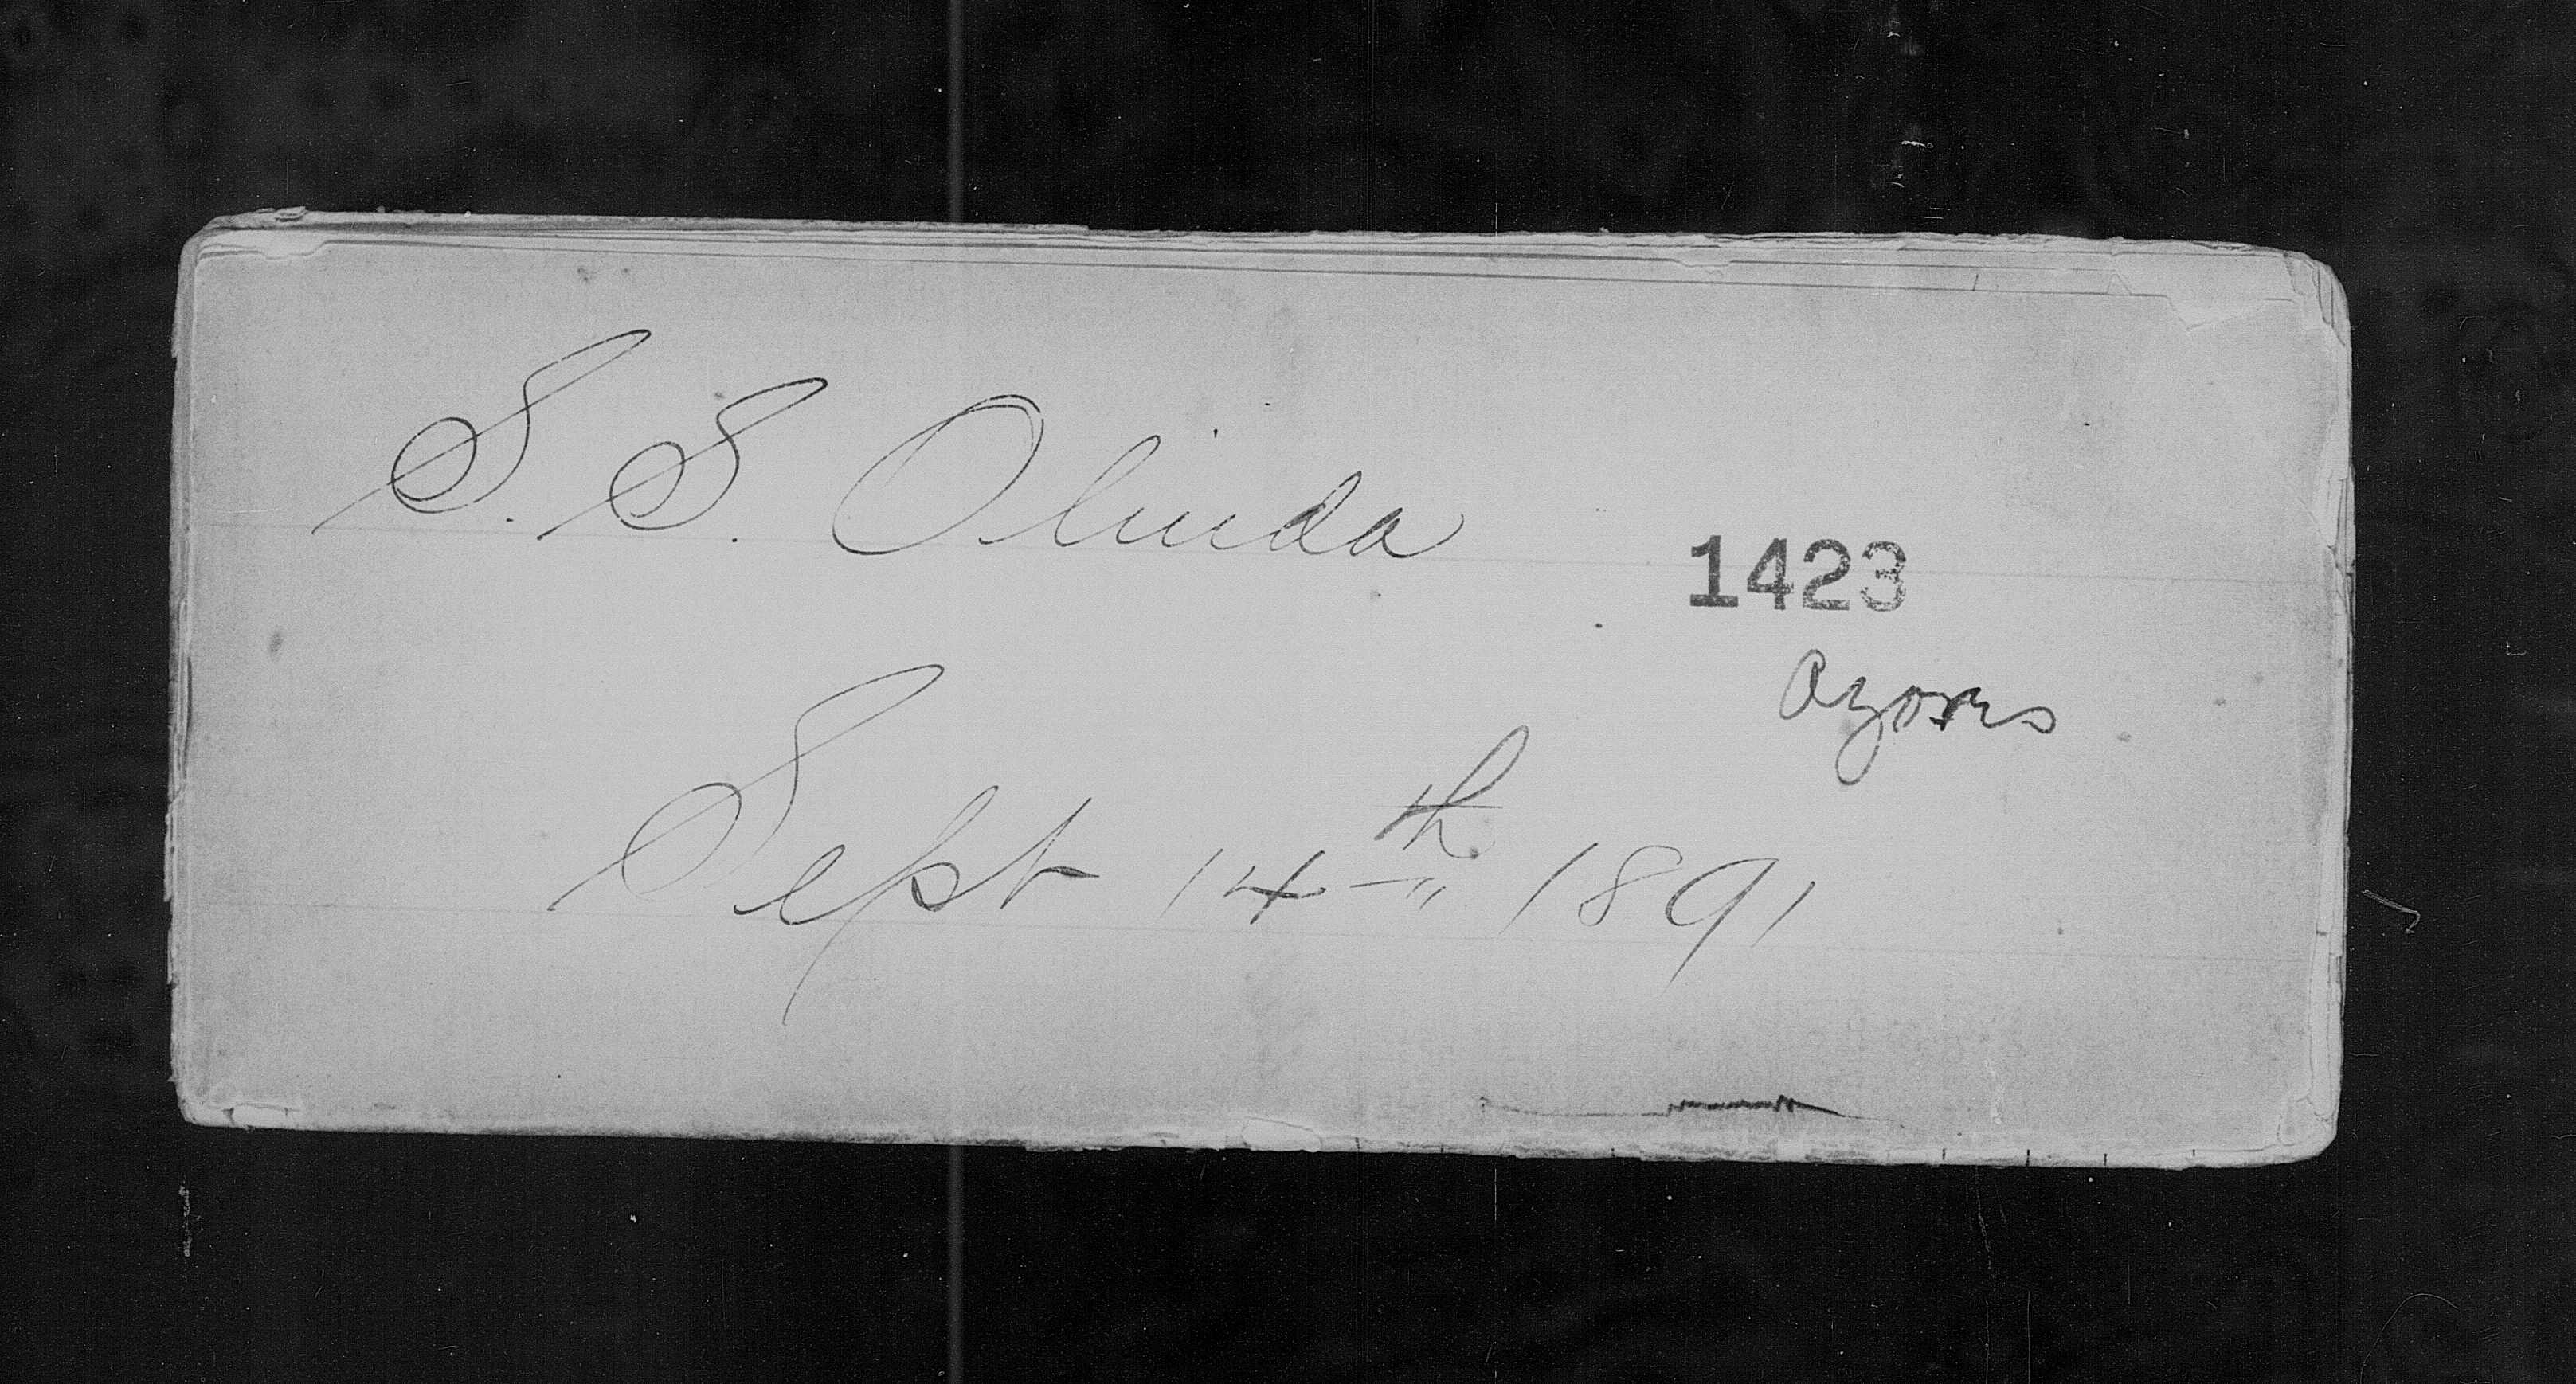 S. S. Olinda
1423
Azores
Sept 14th 1891